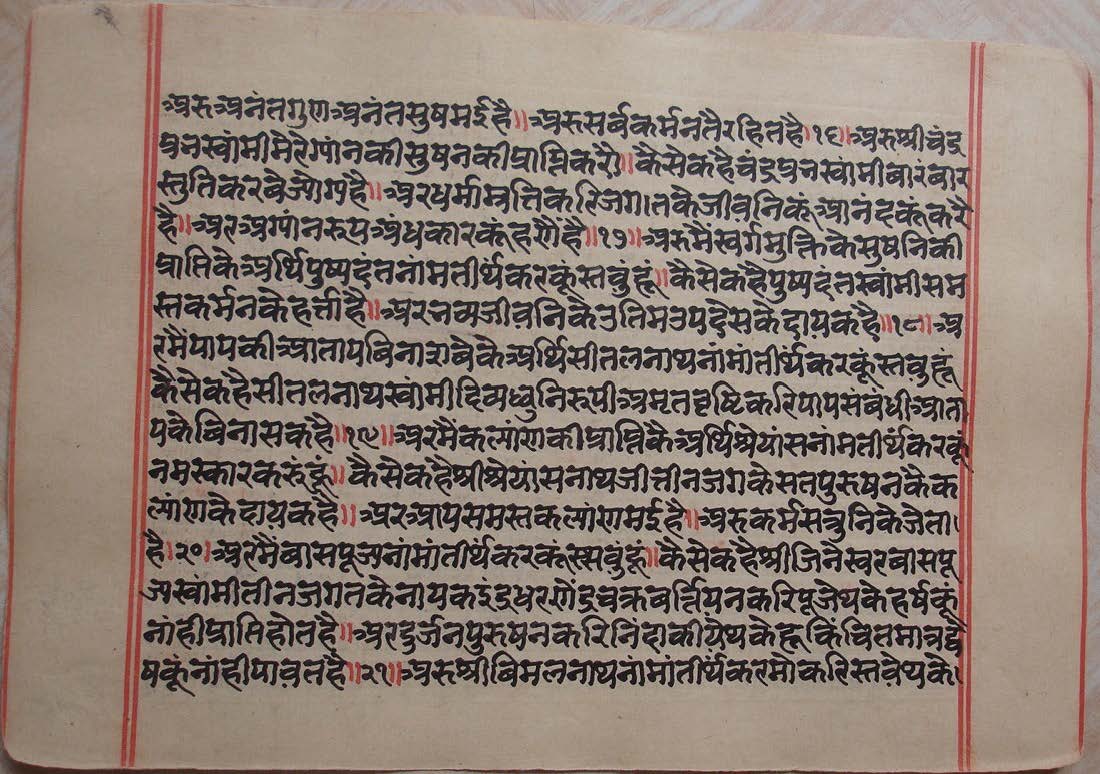 अरु अनंतगुण अनंतसुषमई है॥ अरु सर्वकर्मनतै रहित है॥१६॥ अरु श्रीचंद्र
प्रभस्वांमी मेरै ग्यांनकी सुषनकी प्राप्ति करौ॥ कैसेक है चंद्रप्रभस्वांमी बारंबार
स्तुतिकरबेजोग्य है॥ अर धर्मांम्रतिकरि जगतके जीवनिकूं आनंदकूं करै
है॥ अर अग्यांनरूप अंधकारकूं हरणै है॥१७॥ अरु मैं स्वर्गमुक्तिके सुषनिकी
प्राप्तिकै अर्थि पुष्पदंतनांमतीर्थंकरकूं स्तवुं हूं॥ कैसेक है पुष्पदंतस्वांमी सम
स्तकर्मनके हर्त्ता है॥ अर भव्यजीवनिकै उतिम उपदेसके दायक है॥१८॥ अ
र मैं पापकी आताप बिनाशबेकै अर्थि सीतलनाथनांमां तीर्थंकरकूं स्तवु हूं
कैसेक है सीतलनाथस्वांमी दिव्यध्वुनिरूपी अमृतवृष्टिकरि पापसंबंधी आता
पके बिनासक है॥१९॥ अर मैं कल्यांणकी प्राप्तिकै अर्थि श्रेयांसनांमतीर्थंकरकूं
नमस्कार करूं हूं॥ कैसेक है श्रीश्रेयांसनाथजी तीनजगके सतपुरुषनकै क
ल्यांणके दायक है॥ अर आप समस्तकल्यांणमई है॥ अरु कर्मसत्रुनिके जेता।
है।२०। अर मैं बासपूज्यनांमां तीर्थंकरकूं स्तवुं हूं॥ कैसेक है श्रीजिनेस्वर बासपू
ज्यस्वांमी तीनजगतके नायक इंद्र धरणेंद्र चक्रवर्त्तियनकरि पूजे थके हर्षकूं
नांही प्राप्ति होत है॥ अर दुर्जनपुरुषनकरि निंदा कीये थके हू किंचितमात्र द्वे
षकूं नांही पावत है॥२१॥ अरु श्रीबिमलनाथनांमां तीर्थंकर मोकरि स्तवे थके।